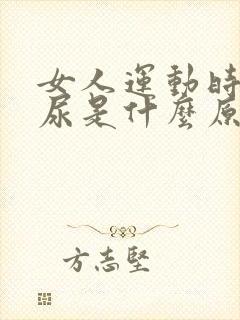 女人運動時
尿是什麼原
方志堅